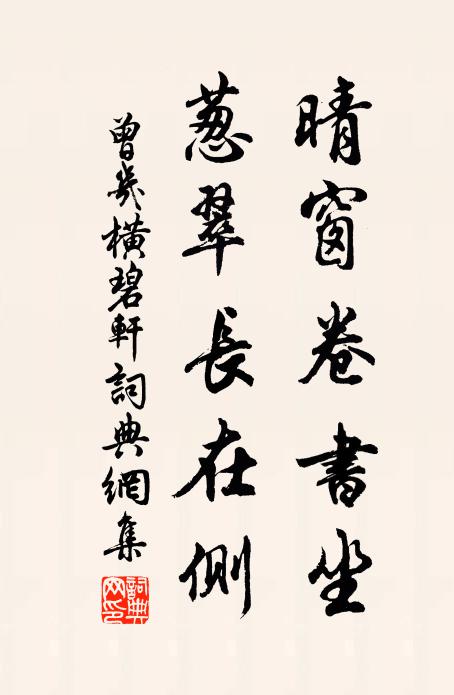 晴窗卷書坐
葱翠長在側
曾幾橫碧軒詞典網集
詞典网印